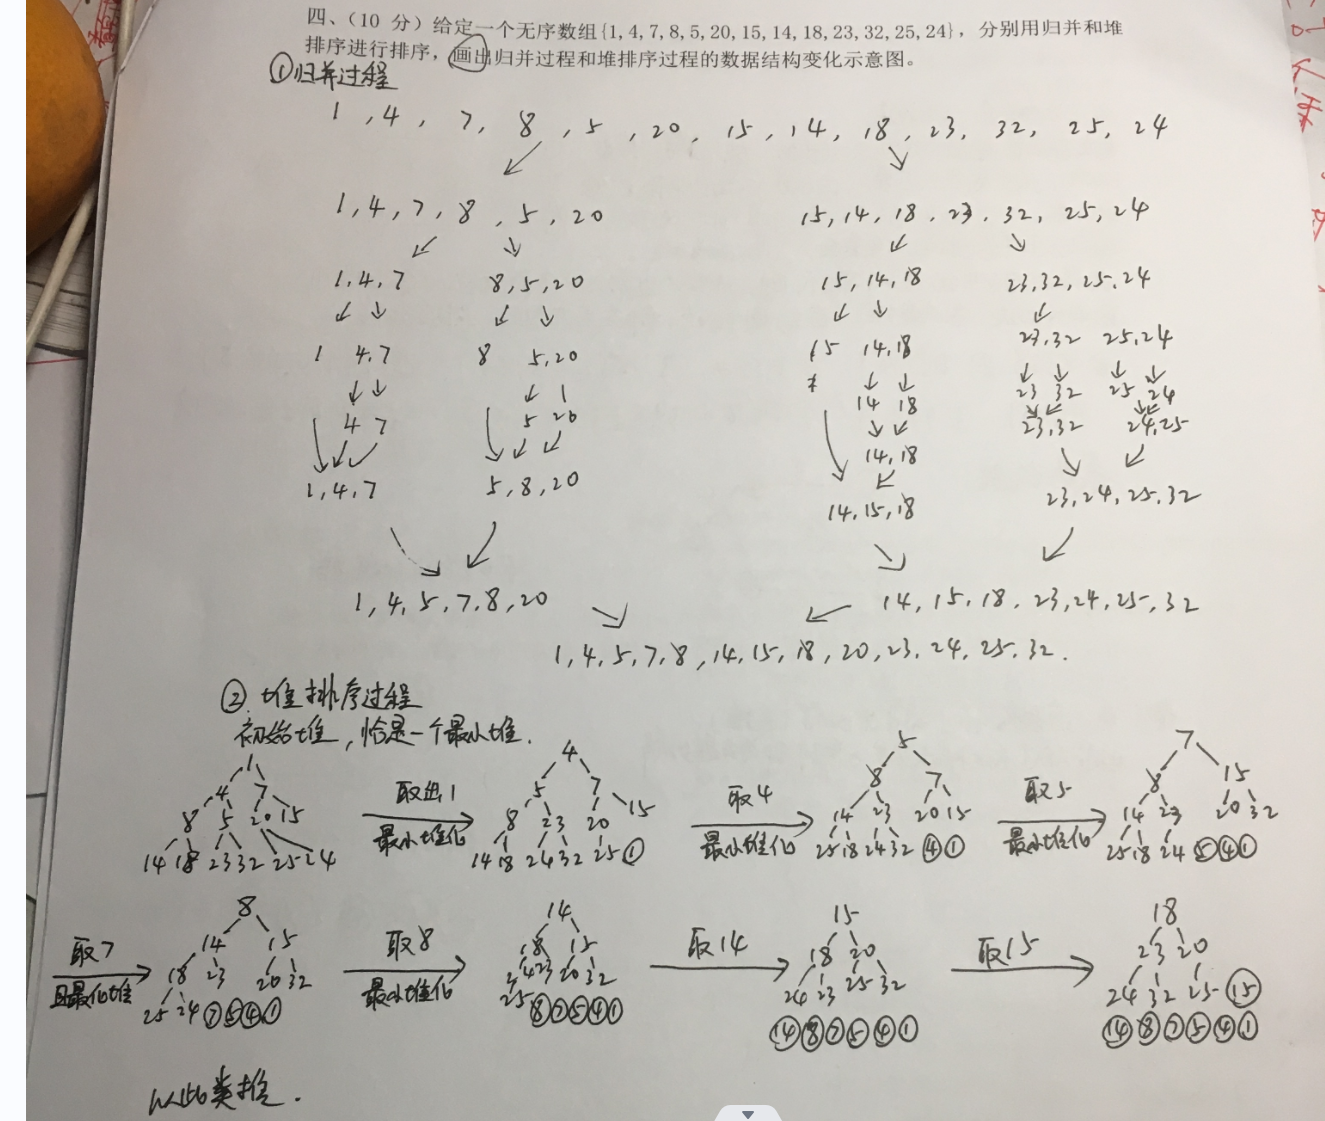 四、（10 分）给定一个无序数组{1,4,7,8,5,20,15,14,18,23,32,25,24}，分别用归并和堆
排序进行排序，画出归并过程和堆排序过程的数据结构变化示意图。
①归并过程
1,4,7,8,5,20,15,14,18,23,32,25,24
1,4,7,8,5,20 15,14,18,23,32,25,24
1,4,7 8,5,20 15,14,18 23,32,25,24
1 4,7 8 5,20 15 14,18 23,32 25,24
4 7 5 20 14 18 23 32 25 24
14,18 23,32 24,25
1,4,7 5,8,20 14,15,18 23,24,25,32
1,4,5,7,8,20 14,15,18,23,24,25,32
1,4,5,7,8,14,15,18,20,23,24,25,32.
②堆排序过程
初始堆,恰是一个最小堆.
1
4 7
8 5 20 15
14 18 23 32 25 24
取出1
最小堆化
4
5 7
8 23 20 15
14 18 24 32 25 ①
取4
最小堆化
5
8 7
14 23 20 15
25 18 24 32 ④①
取5
最小堆化
7
8 15
14 23 20 32
25 18 24 ⑤④①
取7
8
14 15
18 23 20 32
25 24 ⑦⑤④①
取8
最小堆化
14
18 15
24 23 20 32
25 ⑧⑦⑤④①
取14
15
18 20
24 23 25 32
⑭⑧⑦⑤④①
取15
18
23 20
24 32 25 ⑮
⑭⑧⑦⑤④①
以此类推.